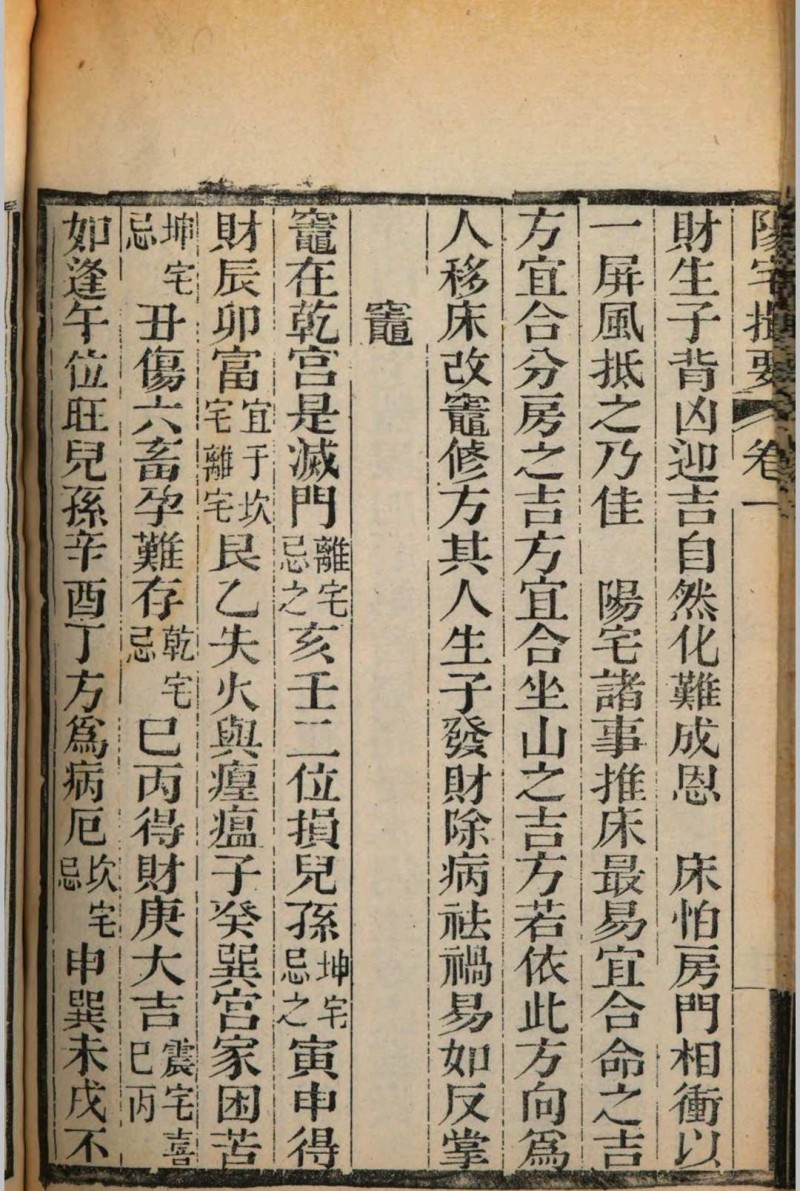 陽宅撮要 卷一
財生子背凶迎吉自然化難成恩　床怕房門相衝以
一屏風抵之乃佳　陽宅諸事推床最易宜合命之吉
方宜合分房之吉方宜合坐山之吉方若依此方向爲
人移床改竈修方其人生子發財除病祛禍易如反掌
竈
竈在乾宮是滅門離宅忌之亥壬二位損兒孫坤宅忌之寅申得
財辰卯富宜于坎宅離宅艮乙失火與瘟瘟子癸巽宮家困苦
坤宅忌丑傷六畜孕難存乾宅忌巳丙得財庚大吉震宅喜巳丙
如逢午位旺兒孫辛酉丁方爲病厄坎宅忌申巽未戌不